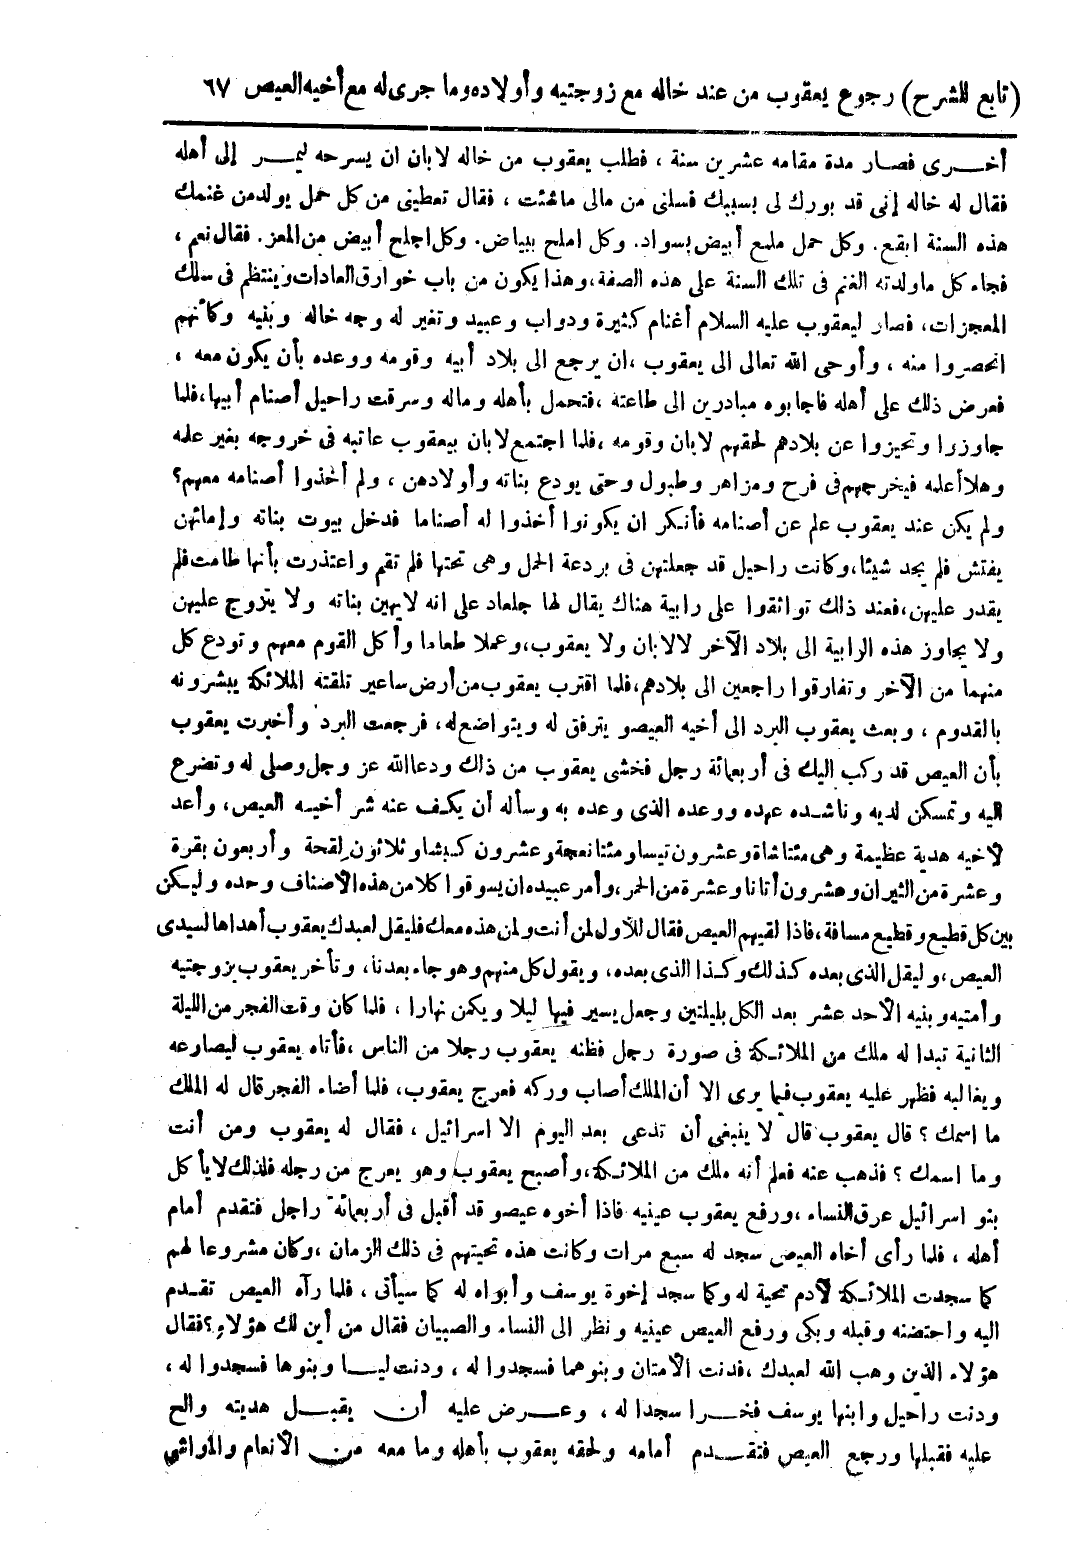 (تابع للشرح) رجوع يعقوب من عند خاله مع زوجتيه وأولاده وما جرى له مع أخيه العيص ٦٧
أخرى فصار مدة مقامه عشرين سنة ، فطلب يعقوب من خاله لابان ان يسرحه ليمر إلى أهله
فقال له خاله إنى قد بورك لى بسببك فسلنى من مالى ماشئت ، فقال تعطينى من كل حمل يولد من غنمك
هذه السنة ابقع. وكل حمل ملمع أبيض بسواد. وكل املح ببياض. وكل اجلح أبيض من المعز. فقال نعم ،
فجاء كل ماولدته الغنم فى تلك السنة على هذه الصفة، وهذا يكون من باب خوارق العادات وينتظم فى سلك
المعجزات، فصار ليعقوب عليه السلام أغنام كثيرة ودواب وعبيد وتغير له وجه خاله وبنيه وكأنهم
انحصروا منه ، وأوحى الله تعالى الى يعقوب ،ان يرجع الى بلاد أبيه وقومه ووعده بأن يكون معه ،
فعرض ذلك على أهله فاجابوه مبادرين الى طاعته ،فتحمل بأهله وماله وسرقت راحيل أصنام أبيها،فلما
جاوزرا وتحيزوا عن بلادهم لحقهم لابان وقومه ،فلما اجتمع لابان بيعقوب عاتبه فى خروجه بغير علمه
وهلا أعلمه فيخرجهم فى فرح ومزاهر وطبول وحتى يودع بناته وأولادهن ، ولم أخذوا أصنامه معهم؟
ولم يكن عند يعقوب علم عن أصنامه فأنكر ان يكونوا أخذوا له أصناما فدخل بيوت بناته وإمائهن
يفتش فلم يجد شيئا،وكانت راحيل قد جعلتهن فى بردعة الحمل وهى تحتها فلم تقم واعتذرت بأنها طامت فلم
يقدر عليهن،فعند ذلك تواثقوا على رابية هناك يقال لها جلعاد على انه لايهين بناته ولا يتزوج عليهن
ولا يجاوز هذه الرابية الى بلاد الآخر لالابان ولا يعقوب،وعملا طعاما وأكل القوم معهم وتودع كل
منهما من الآخر وتفارقوا راجعين الى بلادهم،فلما اقترب يعقوب من أرض ساعير تلقته الملائكة يبشرونه
بالقدوم ، وبعث يعقوب البرد الى أخيه العيصو يترفق له ويتواضع له، فرجعت البرد وأخبرت يعقوب
بأن العيص قد ركب اليك فى أربعمائة رجل فخشى يعقوب من ذلك ودعا الله عز وجل وصلى له وتضرع
اليه وتمسكن لديه وناشده عهده ووعده الذى وعده به وسأله أن يكف عنه شر أخيه العيص، وأعد
لاخيه هدية عظيمة وهى مئتا شاة وعشرون تيسا ومئتا نعجة وعشرون كبشا وثلاثون لقحة وأربعون بقرة
وعشرة من الثيران وعشرون أتانا وعشرة من الحمر،وأمر عبيده ان يسوقوا كلا من هذه الاصناف وحده وليكن
بين كل قطيع وقطيع مسافة،فاذا لقيهم العيص فقال للأول لمن أنت ولمن هذه معك فليقل لعبدك يعقوب أهداها لسيدى
العيص،وليقل الذى بعده كذلك وكذا الذى بعده، ويقول كل منهم وهو جاء بعدنا، وتأخر يعقوب بزوجتيه
وأمتيه وبنيه الاحد عشر بعد الكل بليلتين وجعل يسير فيها ليلا ويكمن نهارا ، فلما كان وقت الفجر من الليلة
الثانية تبدا له ملك من الملائكة فى صورة رجل فظنه يعقوب رجلا من الناس ،فأتاه يعقوب ليصارعه
ويغالبه فظهر عليه يعقوب فيما يرى الا أن الملك أصاب وركه فعرج يعقوب، فلما أضاء الفجر قال له الملك
ما اسمك ؟ قال يعقوب قال لا ينبغى أن تدعى بعد اليوم الا اسرائيل ، فقال له يعقوب ومن أنت
وما اسمك ؟ فذهب عنه فعلم أنه ملك من الملائكة،وأصبح يعقوب وهو يعرج من رجله فلذلك لايأكل
بنو اسرائيل عرق النساء ،ورفع يعقوب عينيه فاذا أخوه عيصو قد أقبل فى أربعمائة راجل فتقدم أمام
أهله ، فلما رأى أخاه العيص سجد له سبع مرات وكانت هذه تحيتهم فى ذلك الزمان ،وكان مشروعا لهم
كما سجدت الملائكة لآدم تحية له وكما سجد إخوة يوسف وأبواه له كما سيأتى ، فلما رآه العيص تقدم
اليه واحتضنه وقبله وبكى ورفع العيص عينيه ونظر الى النساء والصبيان فقال من أين لك هؤلاء؟فقال
هؤلاء الذين وهب الله لعبدك ،فدنت الامتان وبنوهما فسجدوا له ، ودنت ليا وبنوها فسجدوا له ،
ودنت راحيل وابنها يوسف فخرا سجدا له ، وعرض عليه أن يقبل هديته والح
عليه فقبلها ورجع العيص فتقدم أمامه ولحقه يعقوب بأهله وما معه من الأنعام والمواشي